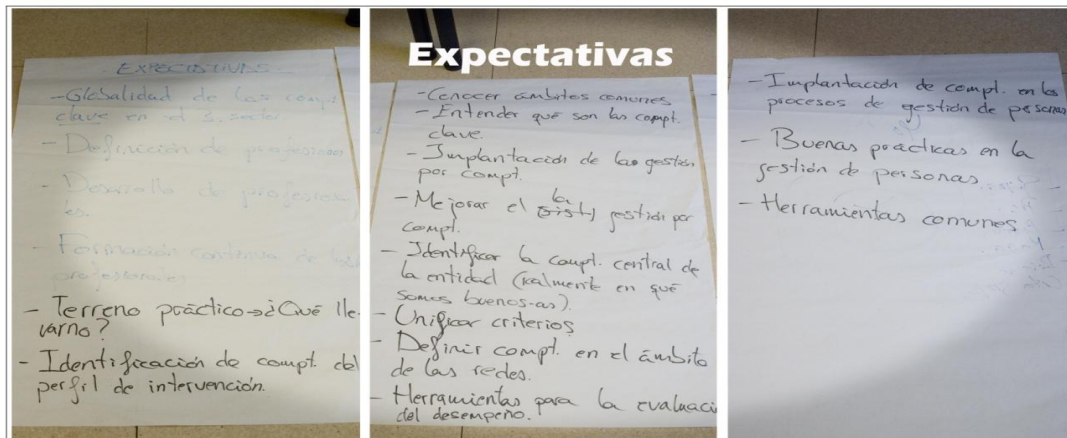 EXPECTATIVAS
- Globalidad de las compt.
clave en el 3. sector
- Definición de profesionales
- Desarrollo de profesiona
les.
- Formación continua de los
profesionales
- Terreno práctico→¿Qué lle-
varno?
- Identificación de compt. del
perfil de intervención.
Expectativas
- Conocer ámbitos comunes
- Entender qué son las compt.
clave.
- Implantación de las gestión
por compt.
- Mejorar el la gestión por
compt.
- Identificar la compt. central de
la entidad (realmente en qué
somos buenos-as).
- Unificar criterios
- Definir compt. en el ámbito
de las redes.
- Herramientas para la evaluaci
del desempeño.
- Implantación de compt. en los
procesos de gestión de personas
- Buenas prácticas en la
gestión de personas.
- Herramientas comunes